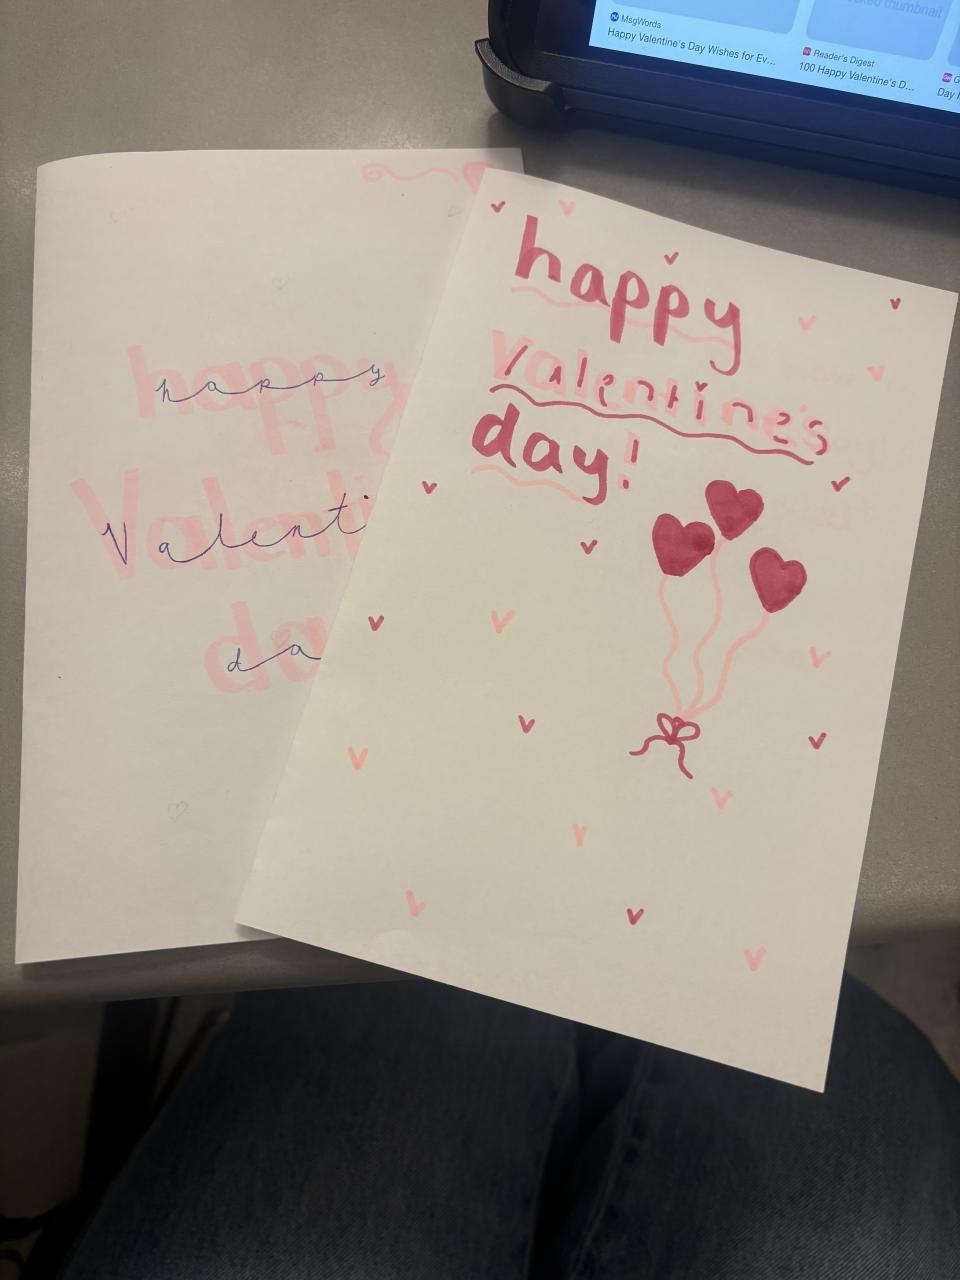 MsgWords
Happy Valentine's Day Wishes for Ev...
Reader's Digest
100 Happy Valentine's D...
happy
Valenti
da
happy
valentine's
day!